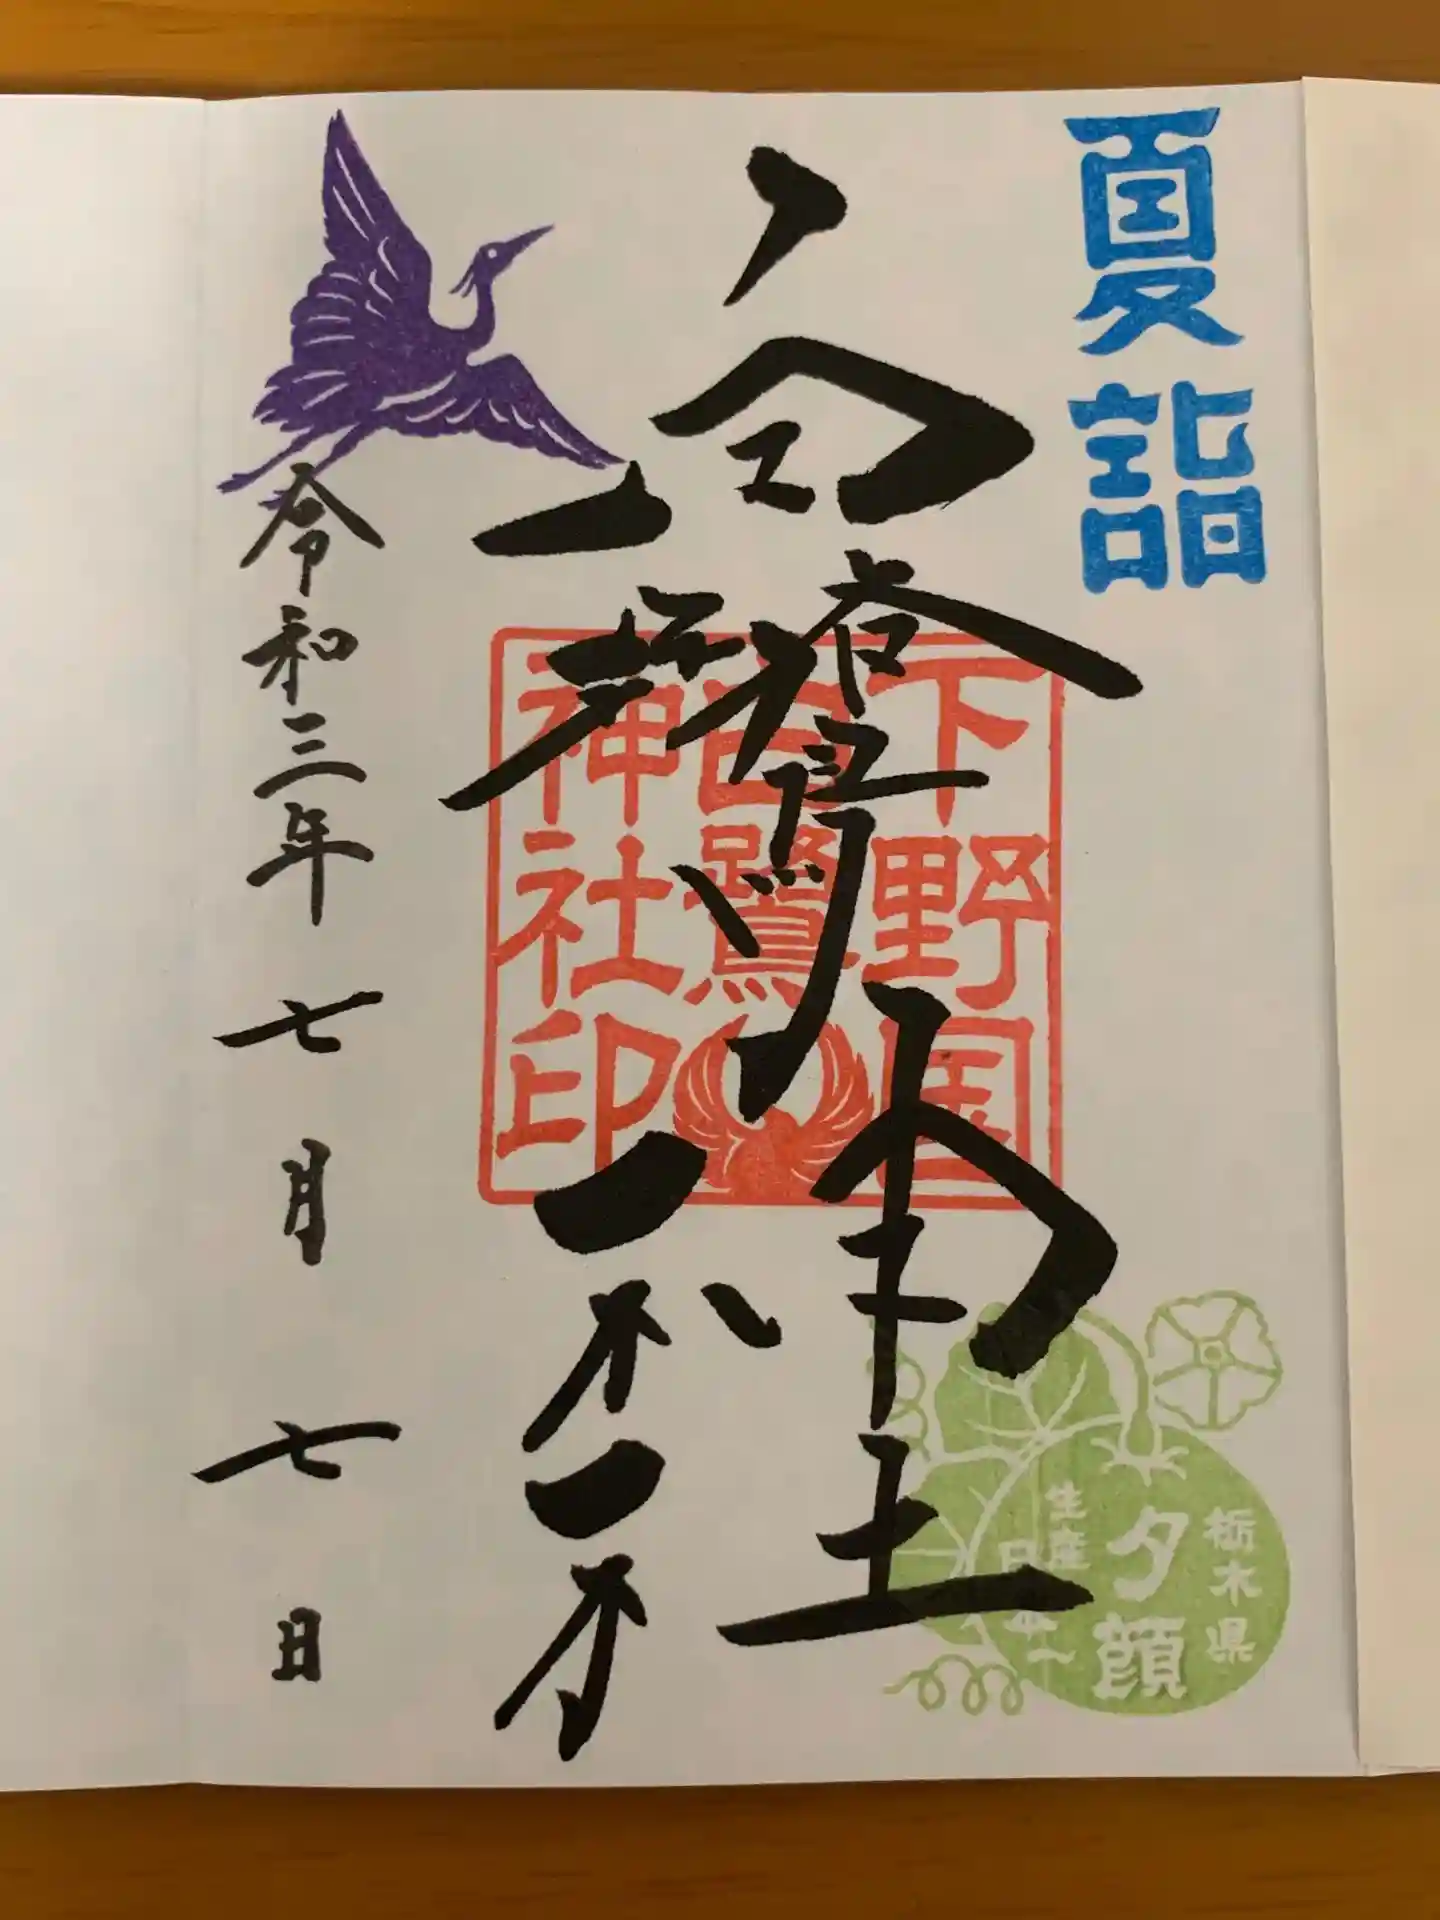 夏詣
白鷺神社
下野国
白鷺
神社印
令和三年七月七日
栃木県
夕顔
生産
日本一